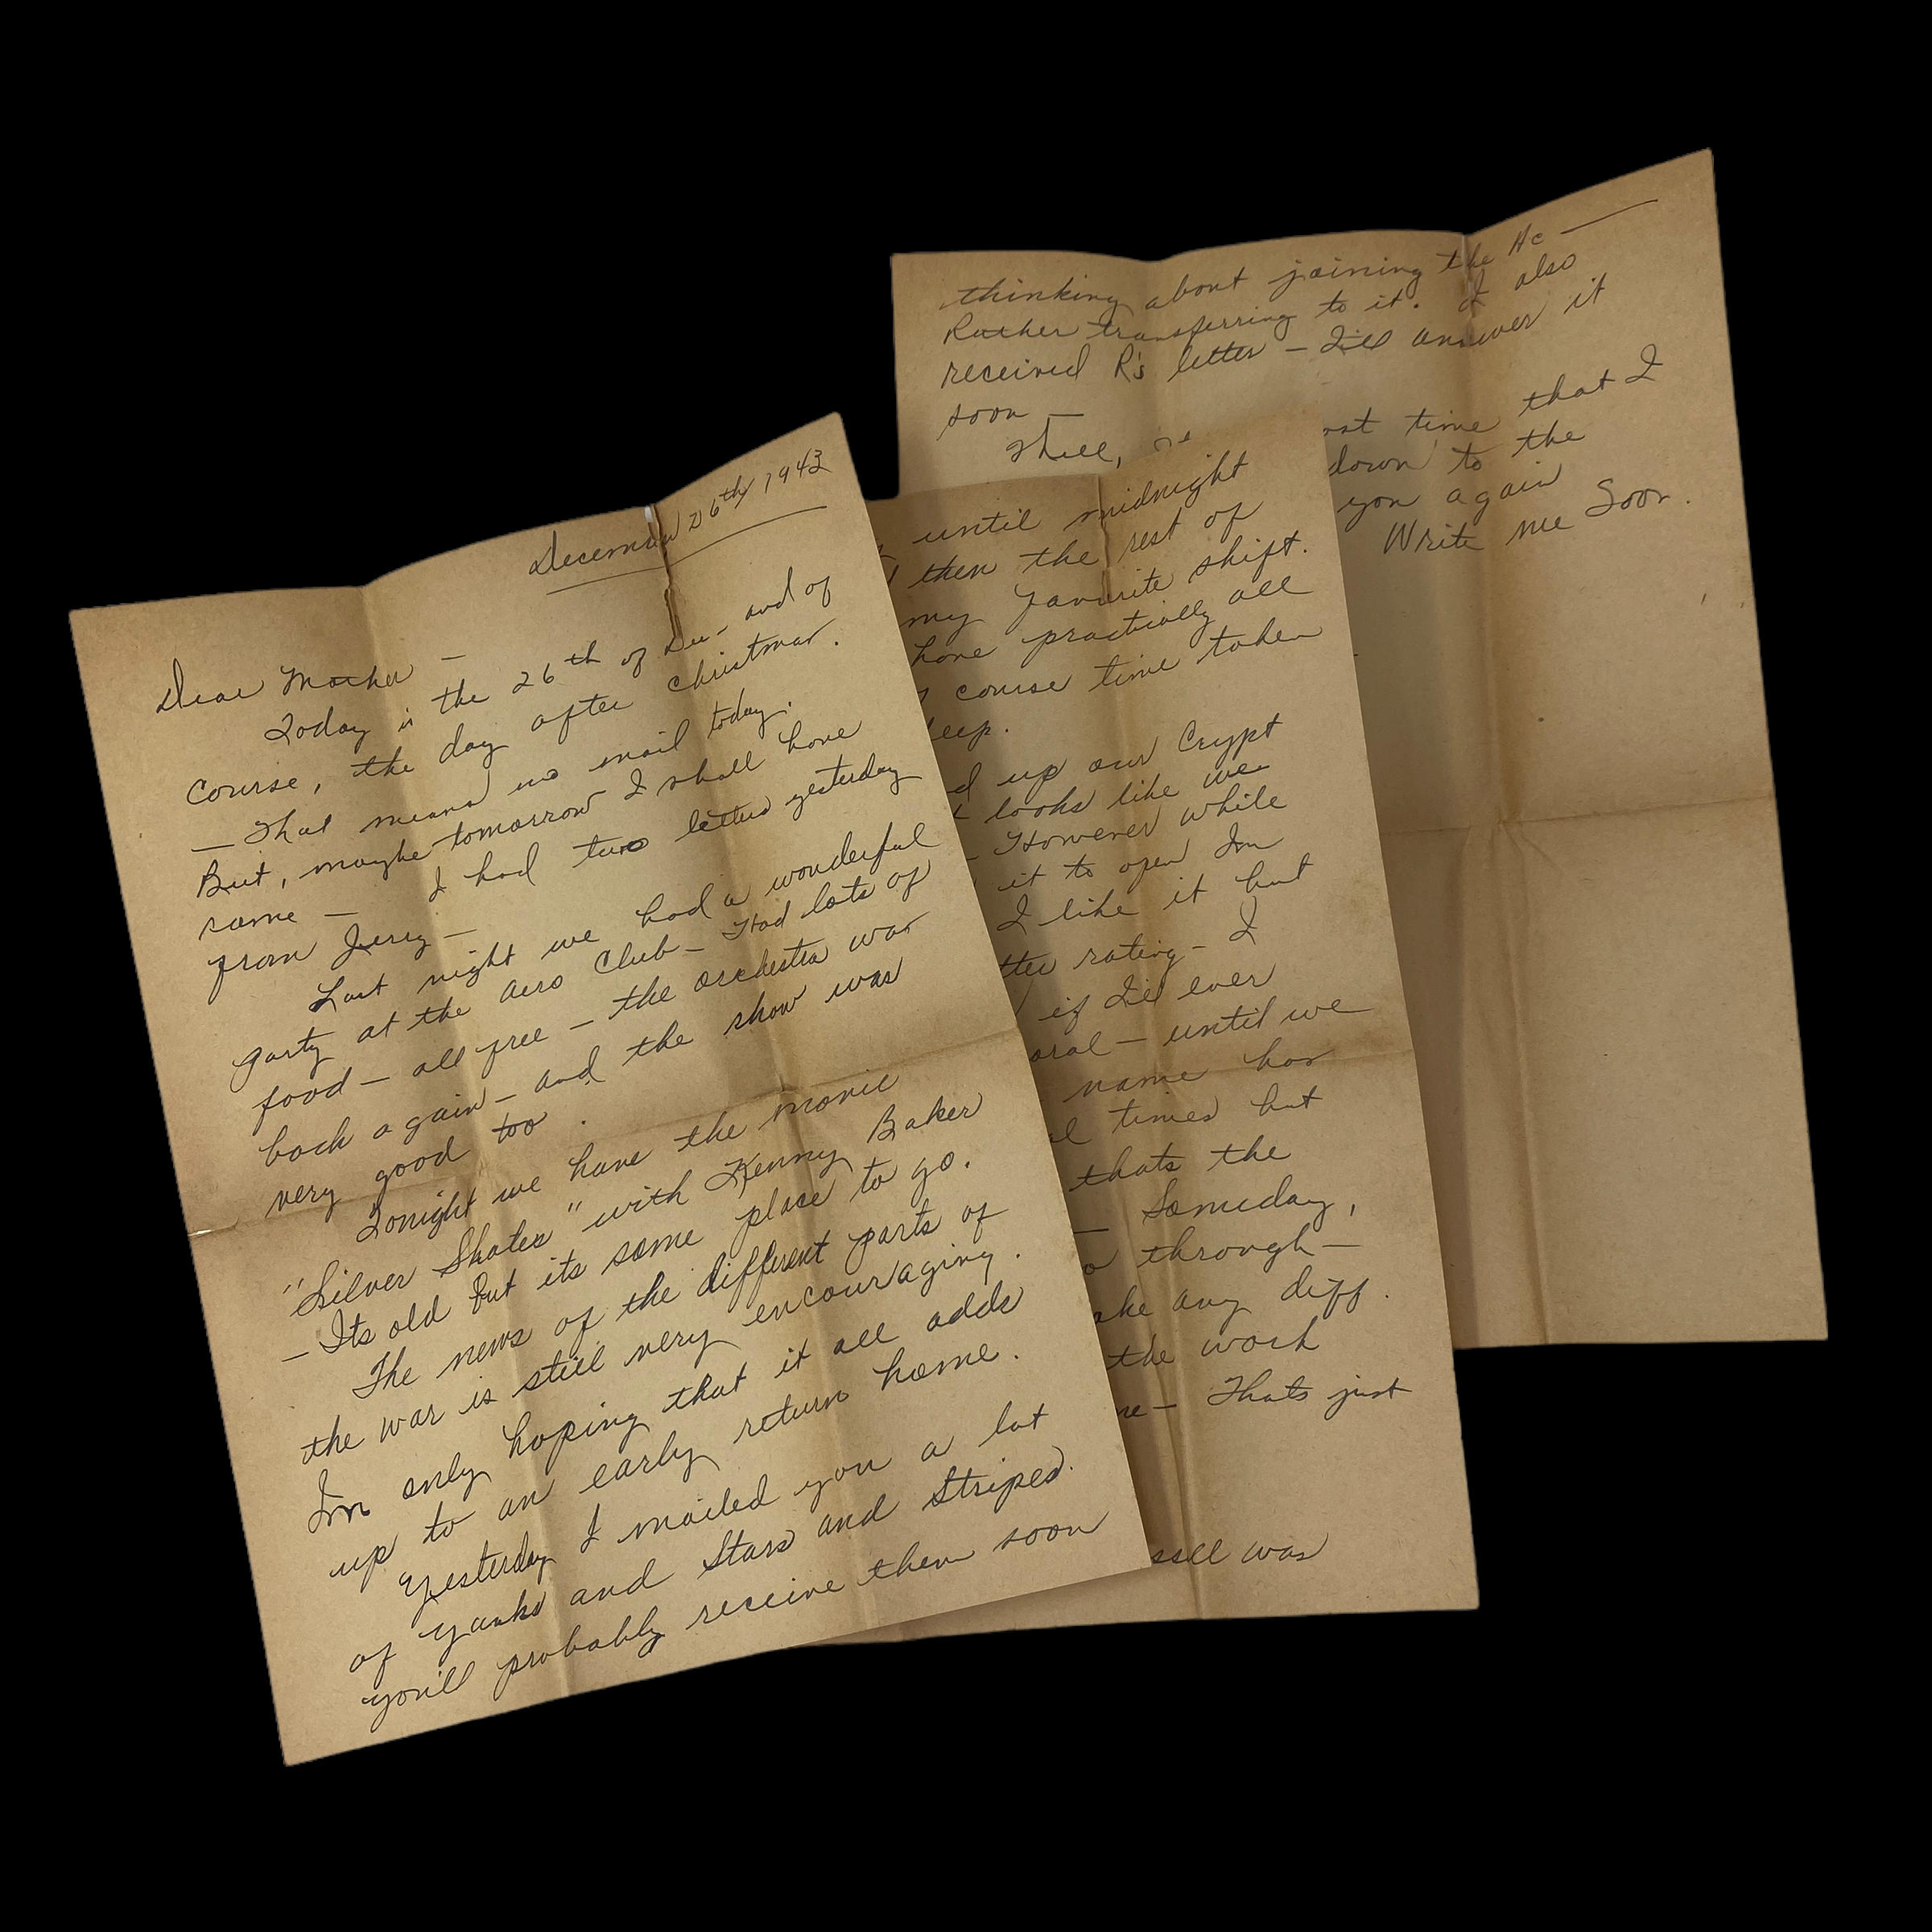 December 26th 1943
Dear Mother —
Today is the 26th of Dec- and of
course, the day after Christmas.
— That means no mail today.
But, maybe tomorrow I shall have
some — I had two letters yesterday
from Jerry —
Last night we had a wonderful
party at the aero Club — Had lots of
food — all free — the orchestra was
back again — and the show was
very good too.
Tonight we have the movie
"Silver Skates" with Kenny Baker
— Its old but its some place to go.
The news of the different parts of
the war is still very encouraging.
Im only hoping that it all adds
up to an early return home.
Yesterday I mailed you a lot
of Yanks and Stars and Stripes.
you'll probably receive them soon
until midnight
then the rest of
my favorite shift.
have practically all
course time taken
eep.
d up our Crypt
looks like we
— However while
it to open Im
I like it but
tter rating — I
if I'll ever
oral — until we
name has
al times but
thats the
— Someday,
o through —
ake any diff.
the work
me — Thats just
ssell was
thinking about joining the Ac —
Rather transferring to it. I also
received R's letter — I'll answer it
soon —
Well,
rst time that I
down to the
you again
Write me Soon.